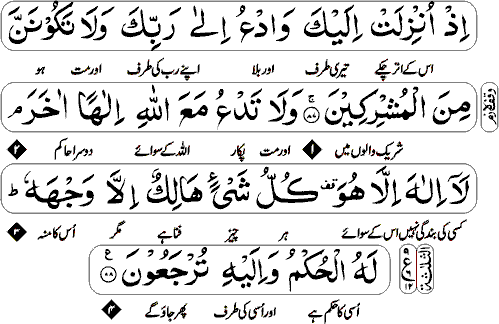 اِذْ اُنْزِلَتْ اِلَيْكَ وَادْعُ اِلٰى رَبِّكَ وَلَا تَكُوْنَنَّ
اس کے اتر چکے تیری طرف اور بلا اپنے رب کی طرف اور مت ہو
مِنَ الْمُشْرِكِيْنَ ۚ ﴿۸۷﴾ وَلَا تَدْعُ مَعَ اللّٰهِ اِلٰهًا اٰخَرَ ۘ
وقف لازم
شریک والوں میں ۱ اور مت پکار اللہ کے سوائے دوسرا حاکم ۲
لَاۤ اِلٰهَ اِلَّا هُوَ ۫ كُلُّ شَىْءٍ هَالِكٌ اِلَّا وَجْهَهٗ ؕ
کسی کی بندگی نہیں اس کے سوائے ہر چیز فنا ہے مگر اُس کا منہ ۳
لَهُ الْحُكْمُ وَاِلَيْهِ تُرْجَعُوْنَ ﴿۸۸﴾ ع
اُسی کا حکم ہے اور اُسی کی طرف پھر جاؤ گے ۴